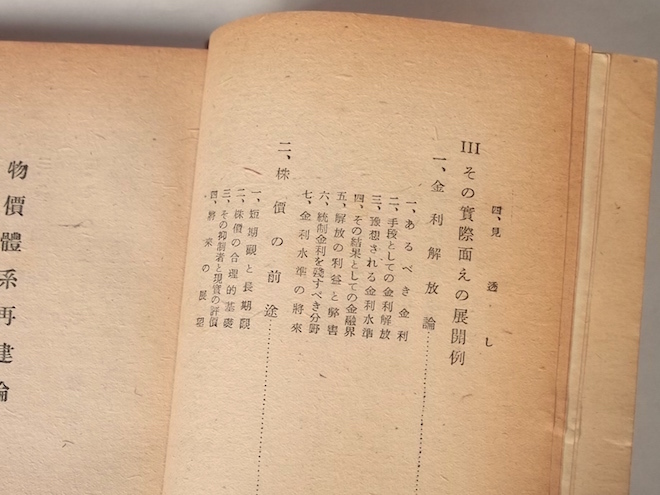 四、見透し
III その實際面えの展開例
一、金利解放論
一、あるべき金利
二、手段としての金利解放
三、豫想される金利水準
四、その結果としての金融界
五、解放の利益と弊害
六、統制金利を殘すべき分野
七、金利水準の將來
二、株價の前途
一、短期觀と長期觀
二、株價の合理的基礎
三、その抑制者と現實の評價
四、將來の展望
物價體系再建論